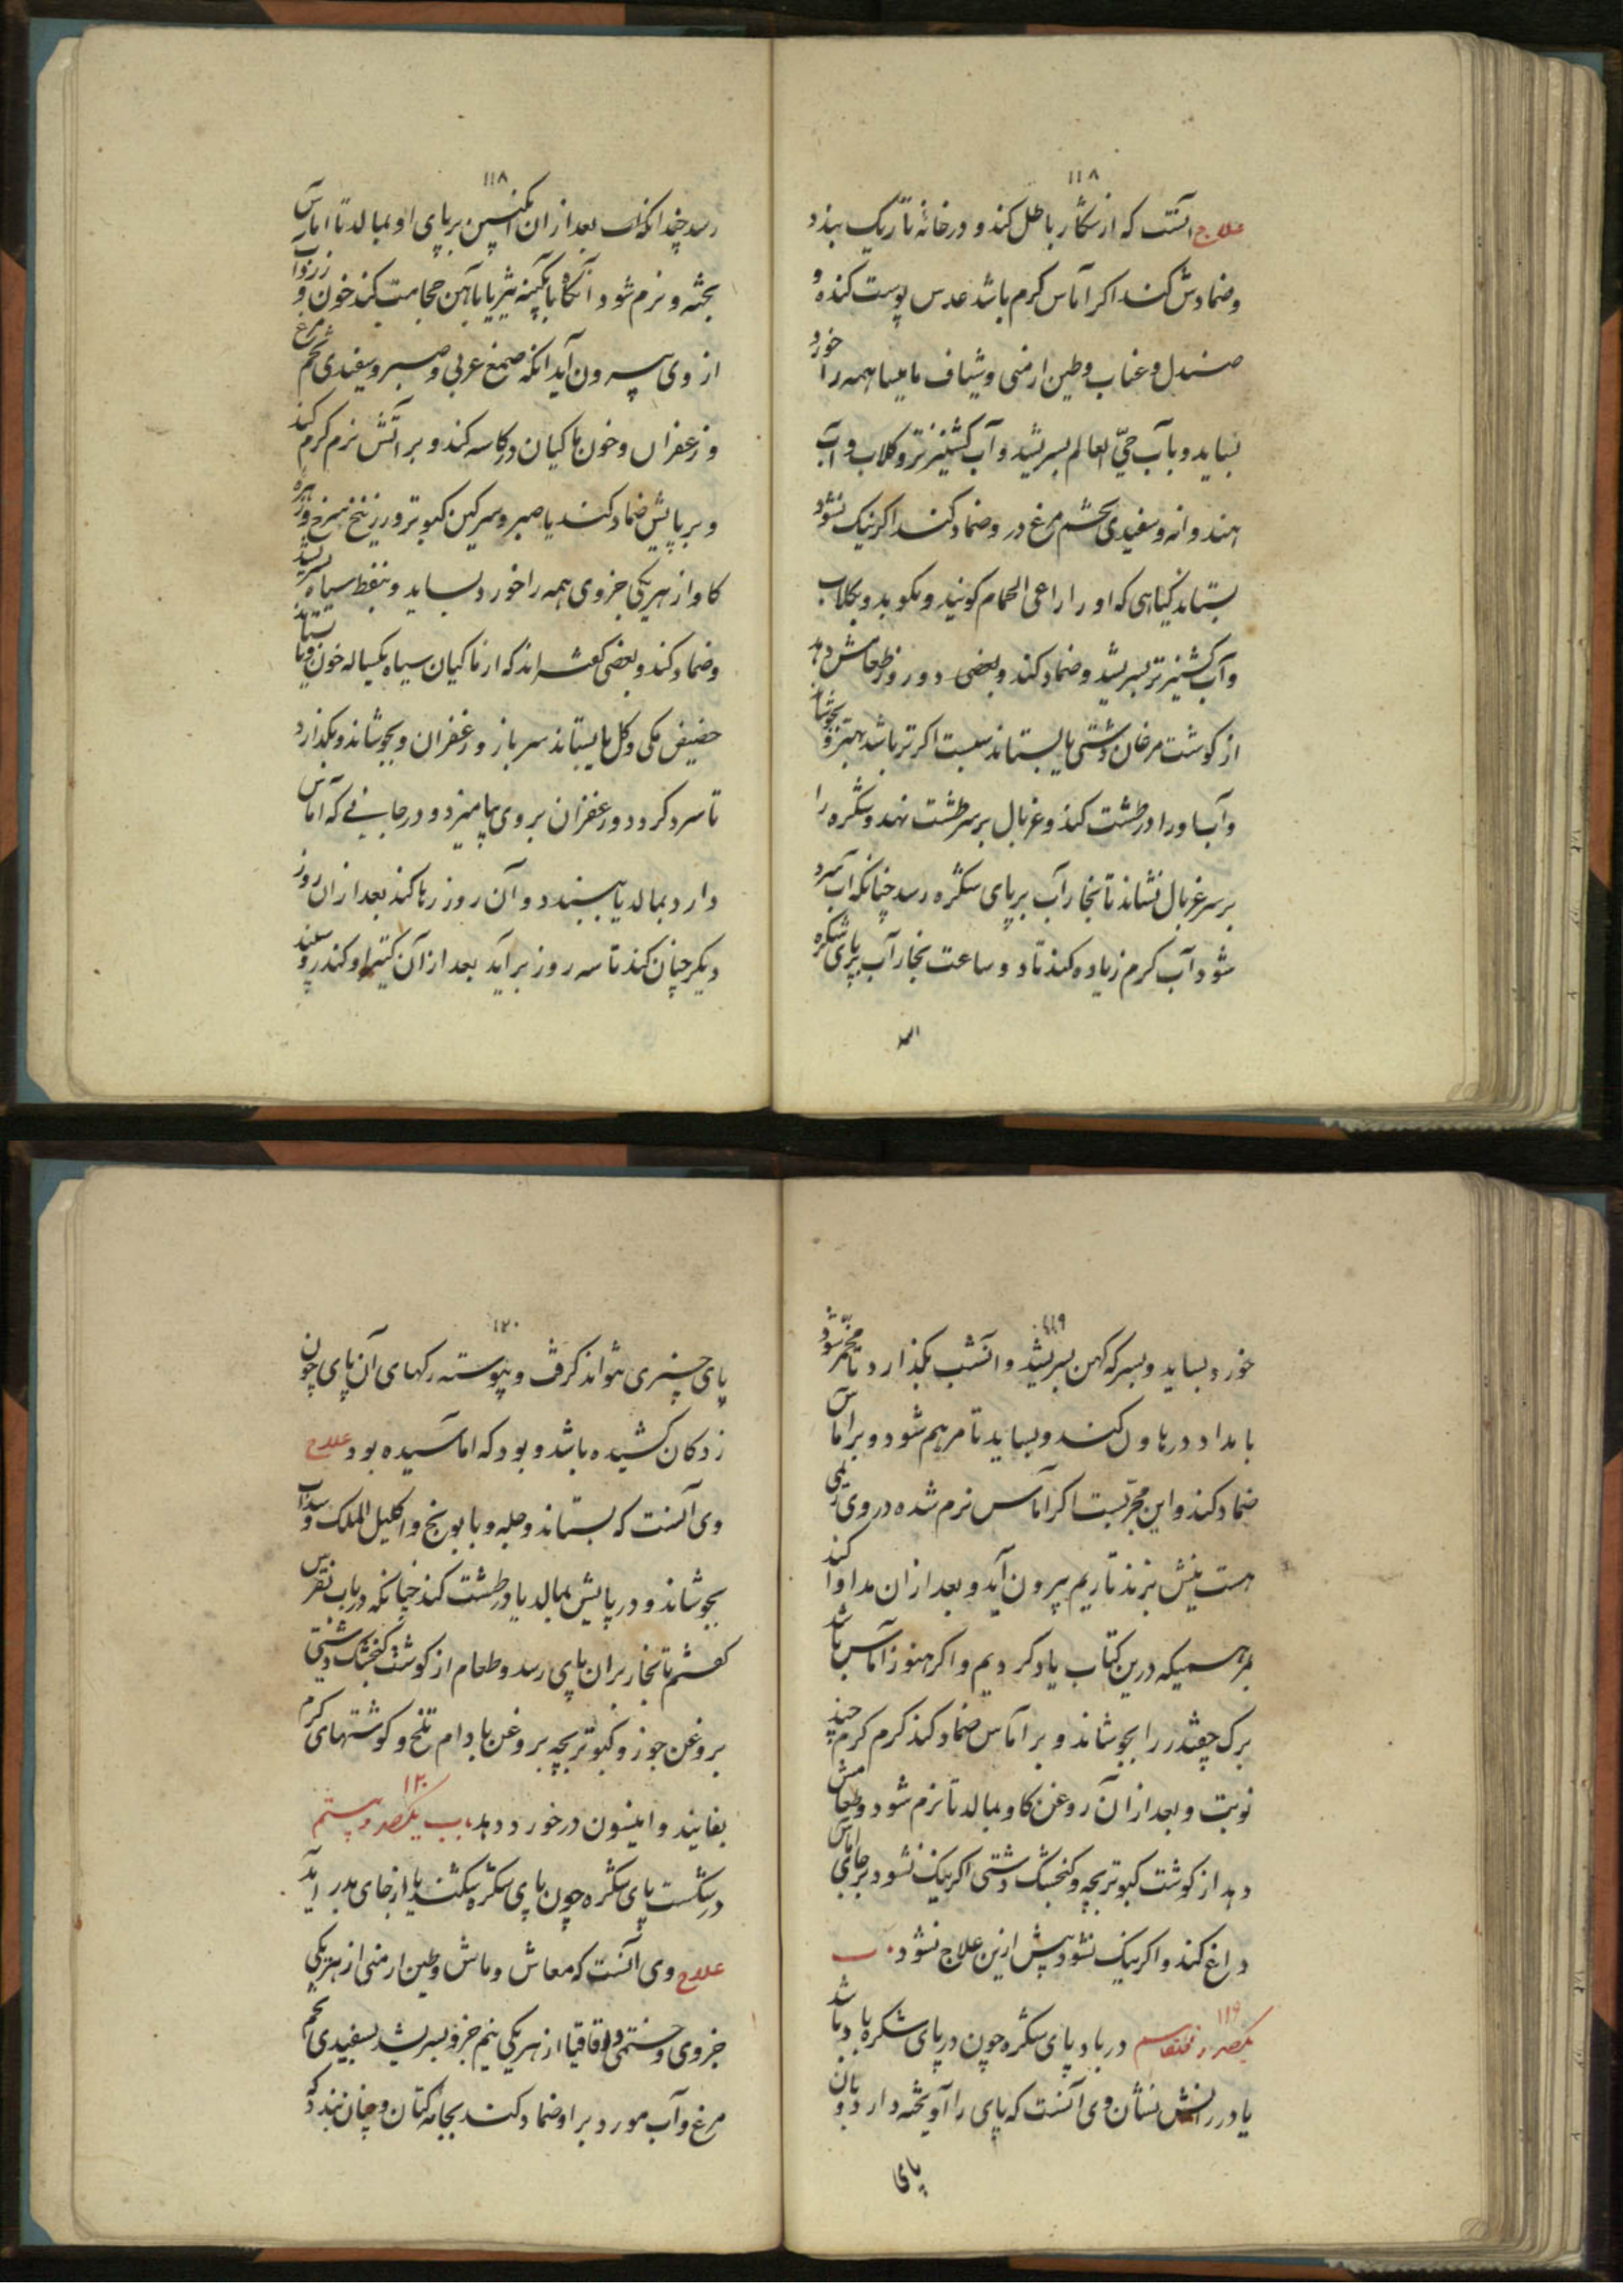 ١١٨
علاج آنست که از شکار باطل کند و در خانهٔ تاریک ببندد
و ضمادش کند اکر آماس کرم باشد عدس پوست کنده و
صندل و عناب و طین ارمنی و شیاف مامیسا همه را خورد
بساید و بآب حیّ العالم بسریشد و آب کشنیز تر و کلاب و آب
هندوانه و سفیدی تخم مرغ در و ضماد کند اکر نیک نشود
بستاند کیاهی که او را راعی الحمام کویند و بکوبد و بکلاب
و آب کشنیز تر بسریشد و ضماد کند و بعضی دو روز طعامش دهد
از کوشت مرغان دشتی یا بستاند سبست اکر تر باشد بهتر و بجوشاند
و آب او را در طشت کند و غربال بر سر طشت نهد و شکره را
بر سر غربال نشاند تا بخار آب بر پای شکره رسد چنانکه آب سرد
شود آب کرم زیاده کند تا دو ساعت بخار آب بر پای شکره
١١٨
رسد چندانکه بعد از ان انکبین بر پای او بمالد تا اماس
پخته و نرم شود آنکاه بآبکینه تیز یا بآهن حجامت کند خون و زرداب
از وی بیرون آید آنکه صمغ عربی و صبر و سفیدی تخم مرغ
و زعفران و خون ماکیان در کاسه کند و بر آتش نرم کرم کند
و بر پایش ضماد کند یا صبر و سرکین کبوتر و زرنیخ سرخ و زهره
کاو از هر یکی جزوی همه را خورد بساید و بنفط سیاه بسریشد
و ضماد کند و بعضی کفته اند که از ماکیان سیاه یکساله خون بستاند و با
حضیض مکی و کل یا بستاند سرباز و زعفران و بجوشاند و بکذارد
تا سرد کردد و زعفران بر وی بیامیزد و در جایی که آماس
دارد بمالد یا ببندد و آن روز رها کند بعد از ان روز
دیکر چنان کند تا سه روز برآید بعد از آن کتیرا و کندر و سفید
١١٩
خورد بساید و بسرکه کهن بسریشد و آنشب بکذارد تا مخمّر شود
بامداد در هاون کند و بساید تا مرهم شود و بر اماس
ضماد کند و این مجرّبست اکر آماس نرم شده در وی ریمی
هست نیش بزند تا ریم بیرون آید و بعد از ان مداوا کند
بمرهمیکه درین کتاب یاد کردیم و اکر هنوز آماس باشد
برک چغندر را بجوشاند و بر آماس ضماد کند کرم کرم چند
نوبت و بعد از آن روغن کاو بمالد تا نرم شود و طعامش
دهد از کوشت کبوتر بچه و کنجشک دشتی اکر نیک نشود بر جای اماس
داغ کند و اکر نیک نشود بیش ازین علاج نشود ب
١١٩
یکصد و نوزدهم در باد پای شکره چون در پای شکره باد باشد
یا در رانش نشان وی آنست که پای را آویخته دارد و بان
پای
١٢٠
پای چیزی نتواند کرفت و پیوسته رکهای آن پای چون
زه کمان کشیده باشد و بود که اماسیده بود علاج
وی آنست که بستاند حلبه و بابونج و اکلیل الملک و سداب
بجوشاند و در پایش بمالد یا در طشت کند چنانکه در باب نقرس
کفتیم تا بخار بران پای رسد و طعام از کوشت کنجشک دشتی
بروغن جوز و کبوتر بچه بروغن بادام تلخ و کوشتهای کرم
بفایند و انیسون در خورد دهد باب یکصد و بیستم
١٢٠
در شکست پای شکره چون پای شکره بشکند یا از جای بدر آید
علاج وی آنست که مغاث و ماش و طین ارمنی از هر یکی
جزوی و خطمی و اقاقیا از هر یکی نیم جزو بسریشد بسفیدی تخم
مرغ و آب مورد بر او ضماد کند بجامهٔ کتان و چنان بندد که